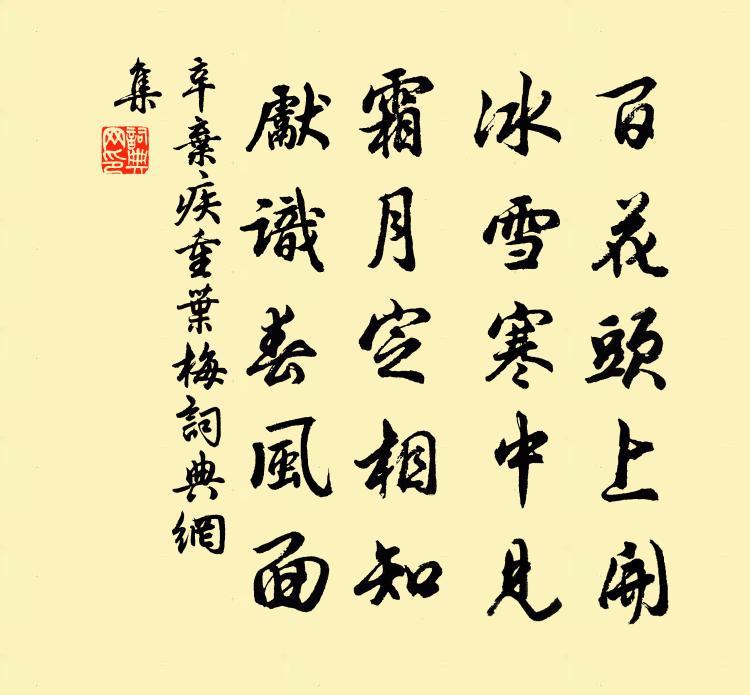 百花頭上開
冰雪寒中見
霜月定相知
獻識春風面
辛棄疾重葉梅詞典網
集
詞典
网印